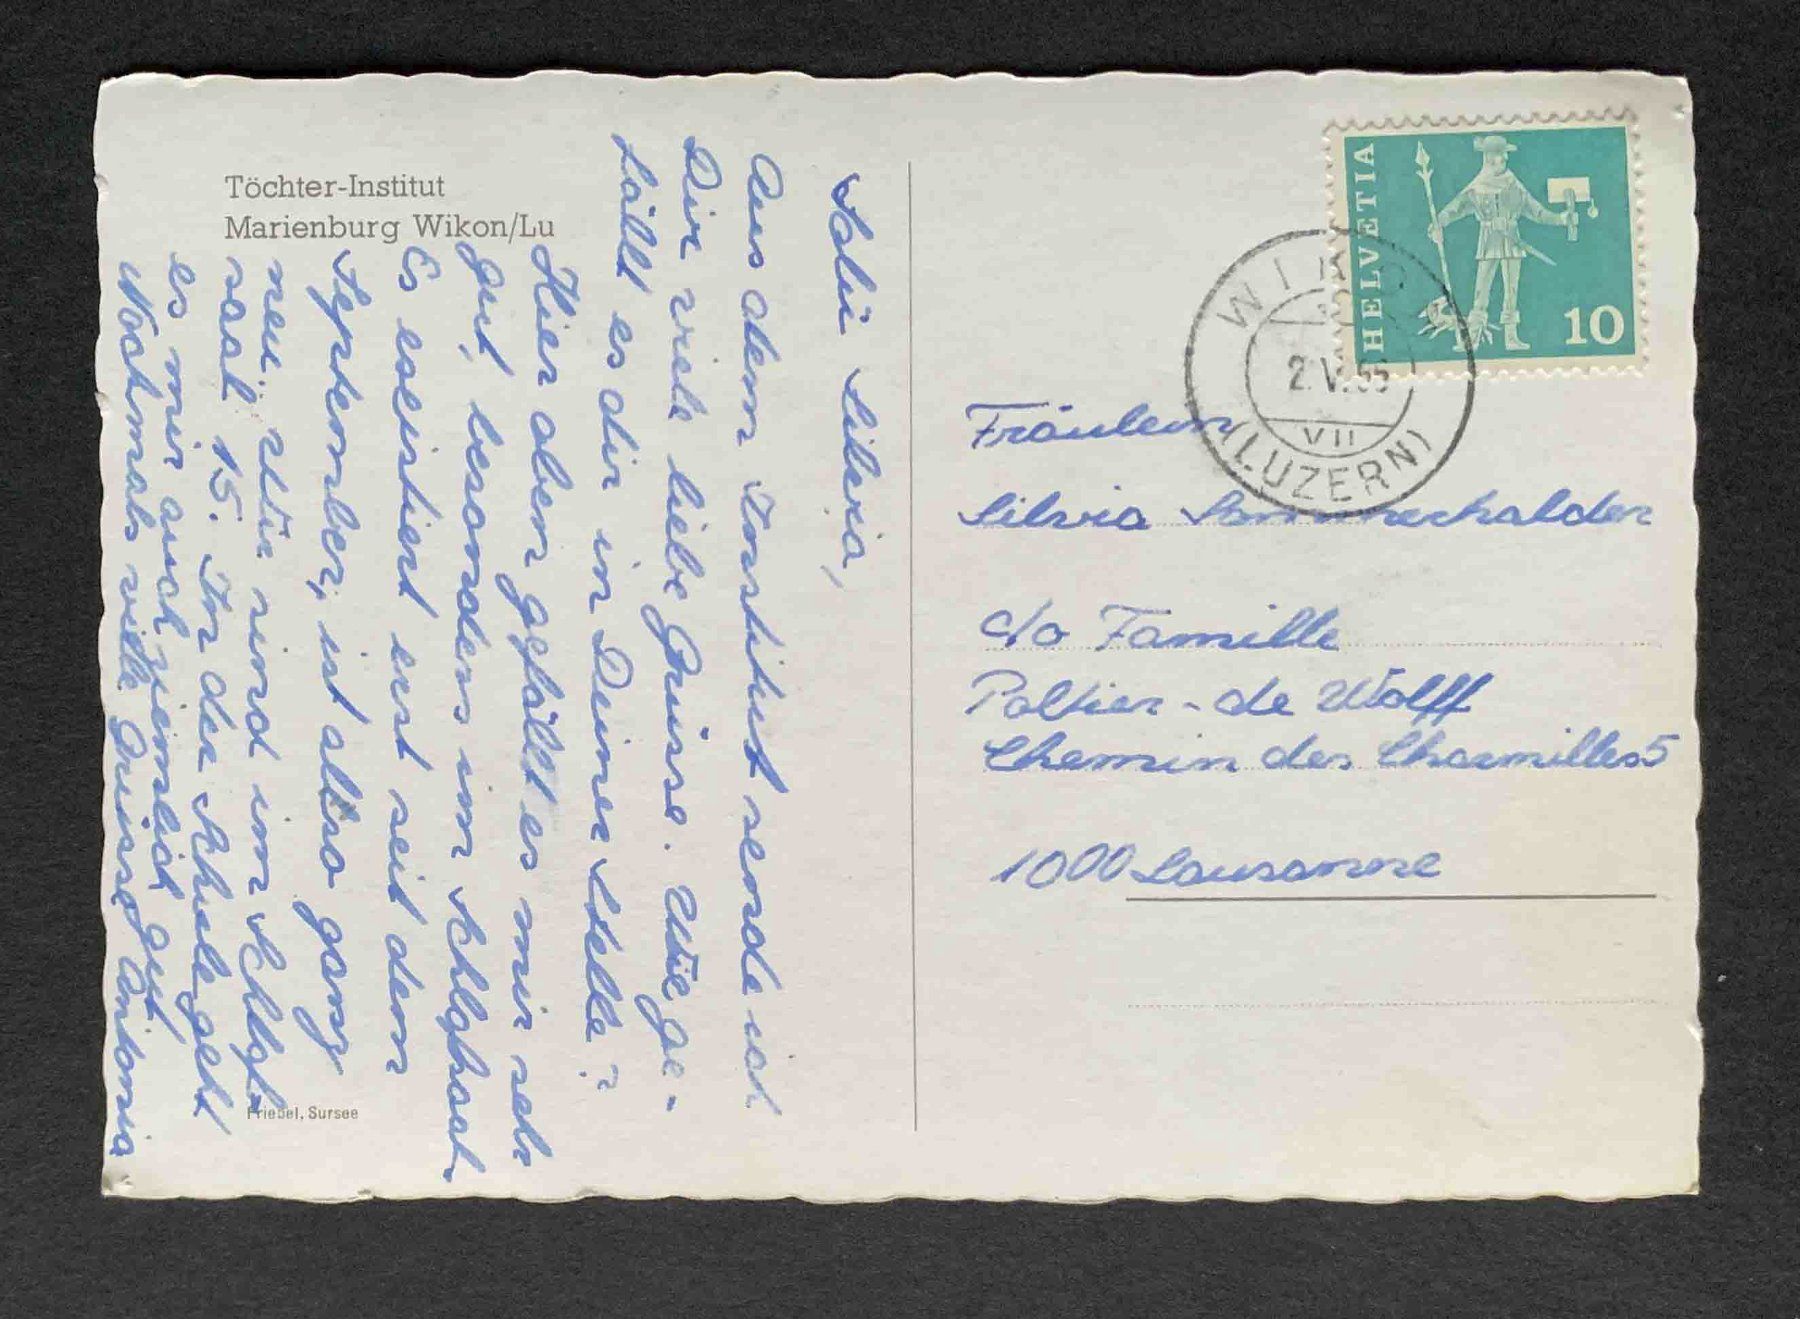 Töchter-Institut
Marienburg Wikon/Lu
Salü Silvia,
Aus dem Institut sende ich
Dir viele liebe Grüsse. Wie ge-
fällt es dir in Deiner Stelle?
Hier oben gefällt es mir sehr
gut, besonders im Schlafsaal.
Es existiert erst seit dem
September, ist also ganz
neu. Wir sind im Schlaf-
saal 15. In der Schule geht
es mir auch ziemlich gut
Nochmals viele Grüsse Antonia
Friebel, Sursee
HELVETIA
10
WIKON
2.V.65
VII
(LUZERN)
Fräulein
Silvia Sommerhalder
c/o Famille
Poltier-de Wolff
Chemin des Charmilles 5
1000 Lausanne